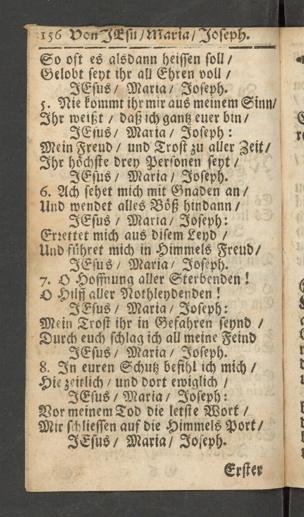 156 Von JEsu/Maria/Joseph.
So oft es alsdann heissen soll/
Gelobt seyt ihr all Ehren voll/
JEsus/ Maria/ Joseph.
5. Nie kommt ihr mir aus meinem Sinn/
Ihr weißt/ daß ich gantz euer bin/
JEsus/ Maria/ Joseph:
Mein Freud/ und Trost zu aller Zeit/
Ihr höchste drey Personen seyt/
JEsus/ Maria/ Joseph.
6. Ach sehet mich mit Gnaden an/
Und wendet alles Böß hindann/
JEsus/ Maria/ Joseph:
Errettet mich aus disem Leyd/
Und führet mich in Himmels Freud/
JEsus/ Maria/ Joseph.
7. O Hoffnung aller Sterbenden!
O Hilff aller Nothleydenden!
JEsus/ Maria/ Joseph:
Mein Trost ihr in Gefahren seynd/
Durch euch schlag ich all meine Feind
JEsus/ Maria/ Joseph.
8. In euren Schutz befihl ich mich/
Hie zeitlich/ und dort ewiglich/
JEsus/ Maria/ Joseph:
Vor meinem Tod die letste Wort/
Mir schliessen auf die Himmels Port/
JEsus/ Maria/ Joseph.
Erster